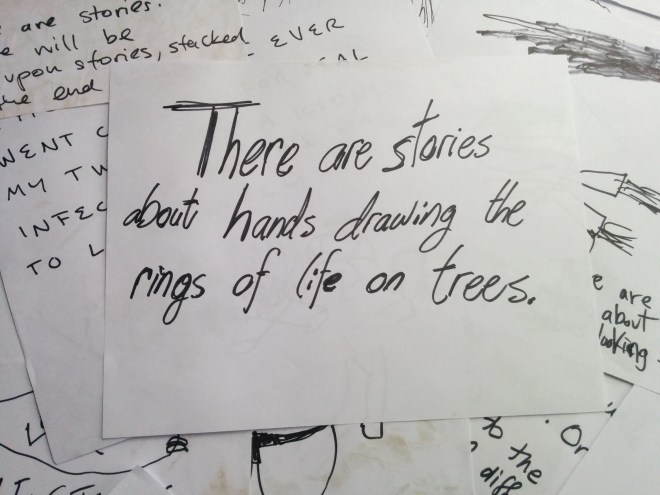 are stories.
will be
upon stories, stacked
the end
EVER
WENT
MY
TO
There are stories
about hands drawing the
rings of life on trees.
are
about
looking
Or
to the